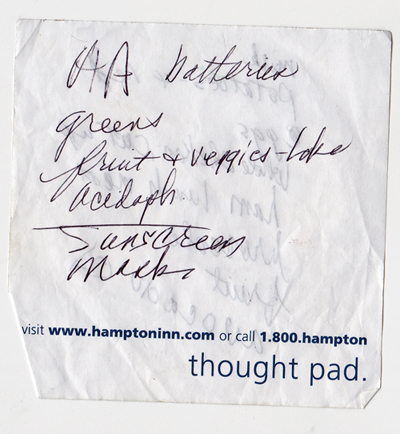 AA batteries
greens
fruit + veggies
acidoph
sunscreen
masks
visit www.hamptoninn.com or call 1.800.hampton
thought pad.